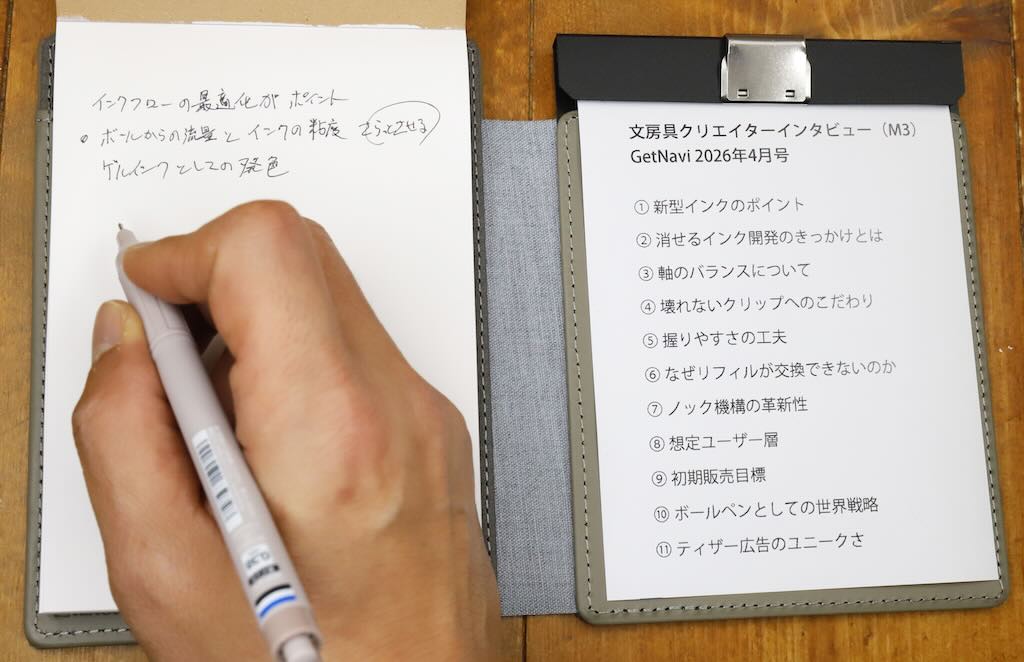 インクフローの最適化がポイント
• ボールからの流量とインクの粘度 さらっとさせる
ゲルインクとしての発色
文房具クリエイターインタビュー（M3）
GetNavi 2026年4月号
① 新型インクのポイント
② 消せるインク開発のきっかけとは
③ 軸のバランスについて
④ 壊れないクリップへのこだわり
⑤ 握りやすさの工夫
⑥ なぜリフィルが交換できないのか
⑦ ノック機構の革新性
⑧ 想定ユーザー層
⑨ 初期販売目標
⑩ ボールペンとしての世界戦略
⑪ ティザー広告のユニークさ